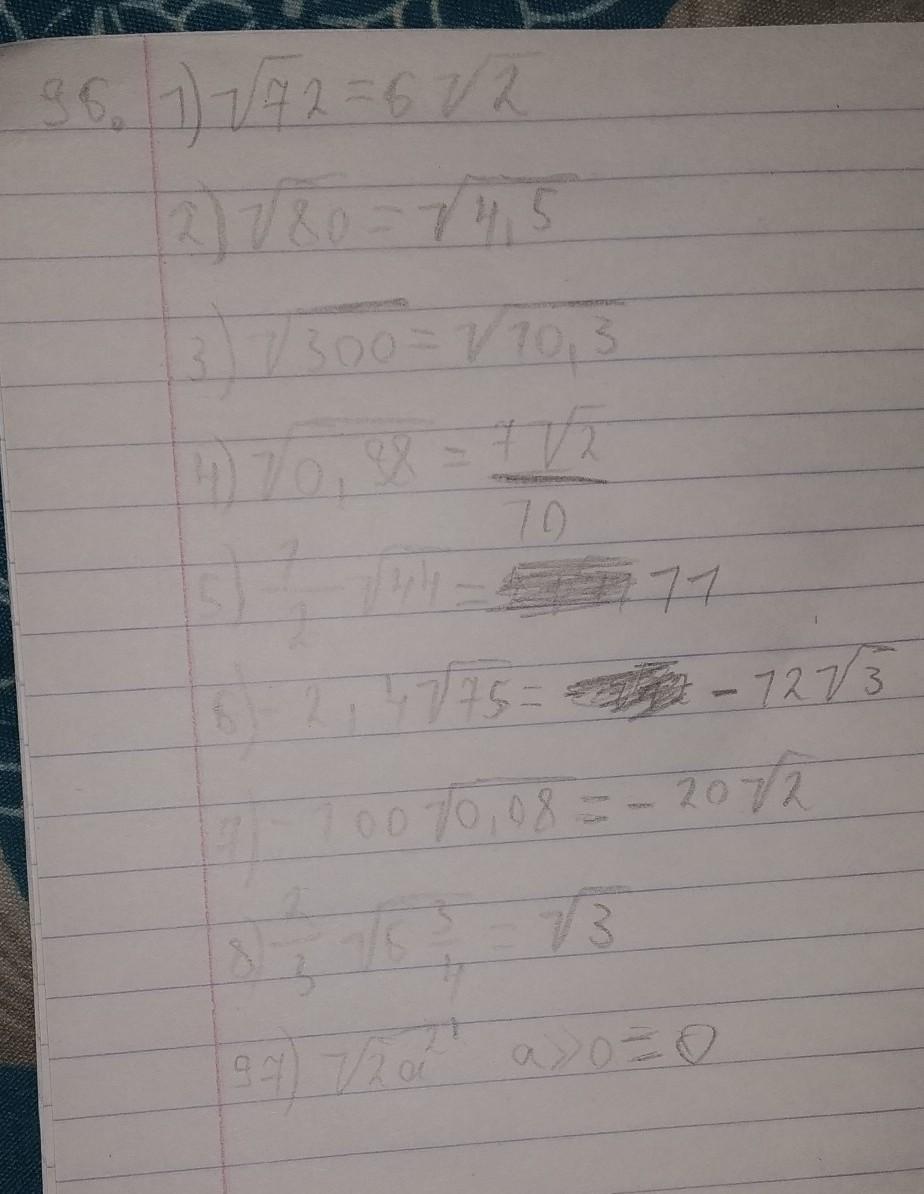 96. 1) √72 = 6√2
2) √80 = √4,5
3) √300 = √10,3
4) √0,98 = 7√2/10
5) 1/2 √44 = 11
6) -2,4√75 = -12√3
7) -100√0,08 = -20√2
8) 2/3 √6 3/4 = √3
97) √2a² a≥0 = 0